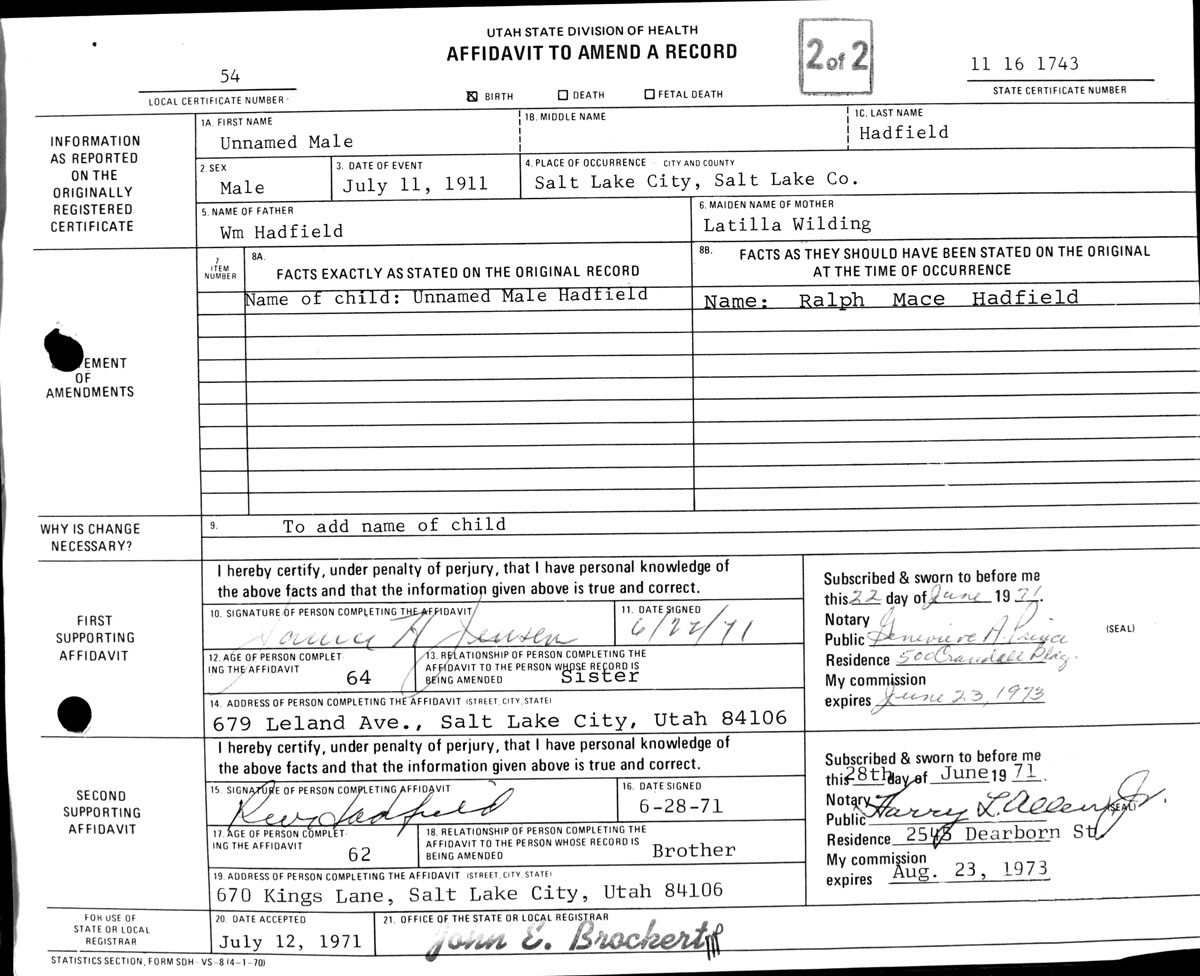 UTAH STATE DIVISION OF HEALTH
AFFIDAVIT TO AMEND A RECORD
2 of 2
54
LOCAL CERTIFICATE NUMBER
11 16 1743
STATE CERTIFICATE NUMBER
☒ BIRTH ☐ DEATH ☐ FETAL DEATH
INFORMATION
AS REPORTED
ON THE
ORIGINALLY
REGISTERED
CERTIFICATE
1A. FIRST NAME
Unnamed Male
1B. MIDDLE NAME
1C. LAST NAME
Hadfield
2. SEX
Male
3. DATE OF EVENT
July 11, 1911
4. PLACE OF OCCURRENCE CITY AND COUNTY
Salt Lake City, Salt Lake Co.
5. NAME OF FATHER
Wm Hadfield
6. MAIDEN NAME OF MOTHER
Latilla Wilding
EMENT
OF
AMENDMENTS
7
ITEM
NUMBER
8A.
FACTS EXACTLY AS STATED ON THE ORIGINAL RECORD
8B. FACTS AS THEY SHOULD HAVE BEEN STATED ON THE ORIGINAL
AT THE TIME OF OCCURRENCE
Name of child: Unnamed Male Hadfield
Name: Ralph Mace Hadfield
WHY IS CHANGE
NECESSARY?
9. To add name of child
FIRST
SUPPORTING
AFFIDAVIT
I hereby certify, under penalty of perjury, that I have personal knowledge of
the above facts and that the information given above is true and correct.
10. SIGNATURE OF PERSON COMPLETING THE AFFIDAVIT
H Jensen
11. DATE SIGNED
6/22/71
12. AGE OF PERSON COMPLET-
ING THE AFFIDAVIT 64
13. RELATIONSHIP OF PERSON COMPLETING THE
AFFIDAVIT TO THE PERSON WHOSE RECORD IS
BEING AMENDED Sister
14. ADDRESS OF PERSON COMPLETING THE AFFIDAVIT (STREET, CITY, STATE)
679 Leland Ave., Salt Lake City, Utah 84106
Subscribed & sworn to before me
this 22 day of June 1971.
Notary
Public Genevieve A. Prince
(SEAL)
Residence 500 Crandall Bldg.
My commission
expires June 23, 1973
SECOND
SUPPORTING
AFFIDAVIT
I hereby certify, under penalty of perjury, that I have personal knowledge of
the above facts and that the information given above is true and correct.
15. SIGNATURE OF PERSON COMPLETING AFFIDAVIT
Hadfield
16. DATE SIGNED
6-28-71
17. AGE OF PERSON COMPLET-
ING THE AFFIDAVIT 62
18. RELATIONSHIP OF PERSON COMPLETING THE
AFFIDAVIT TO THE PERSON WHOSE RECORD IS
BEING AMENDED Brother
19. ADDRESS OF PERSON COMPLETING THE AFFIDAVIT (STREET, CITY, STATE)
670 Kings Lane, Salt Lake City, Utah 84106
Subscribed & sworn to before me
this 28th day of June 19 71.
Notary
Public Harry L. Allen, Jr.
(SEAL)
Residence Dearborn St.
My commission
expires Aug. 23, 1973
FOR USE OF
STATE OR LOCAL
REGISTRAR
20. DATE ACCEPTED
July 12, 1971
21. OFFICE OF THE STATE OR LOCAL REGISTRAR
John E. Brockert
STATISTICS SECTION, FORM SDH - VS - 8 (4-1-70)